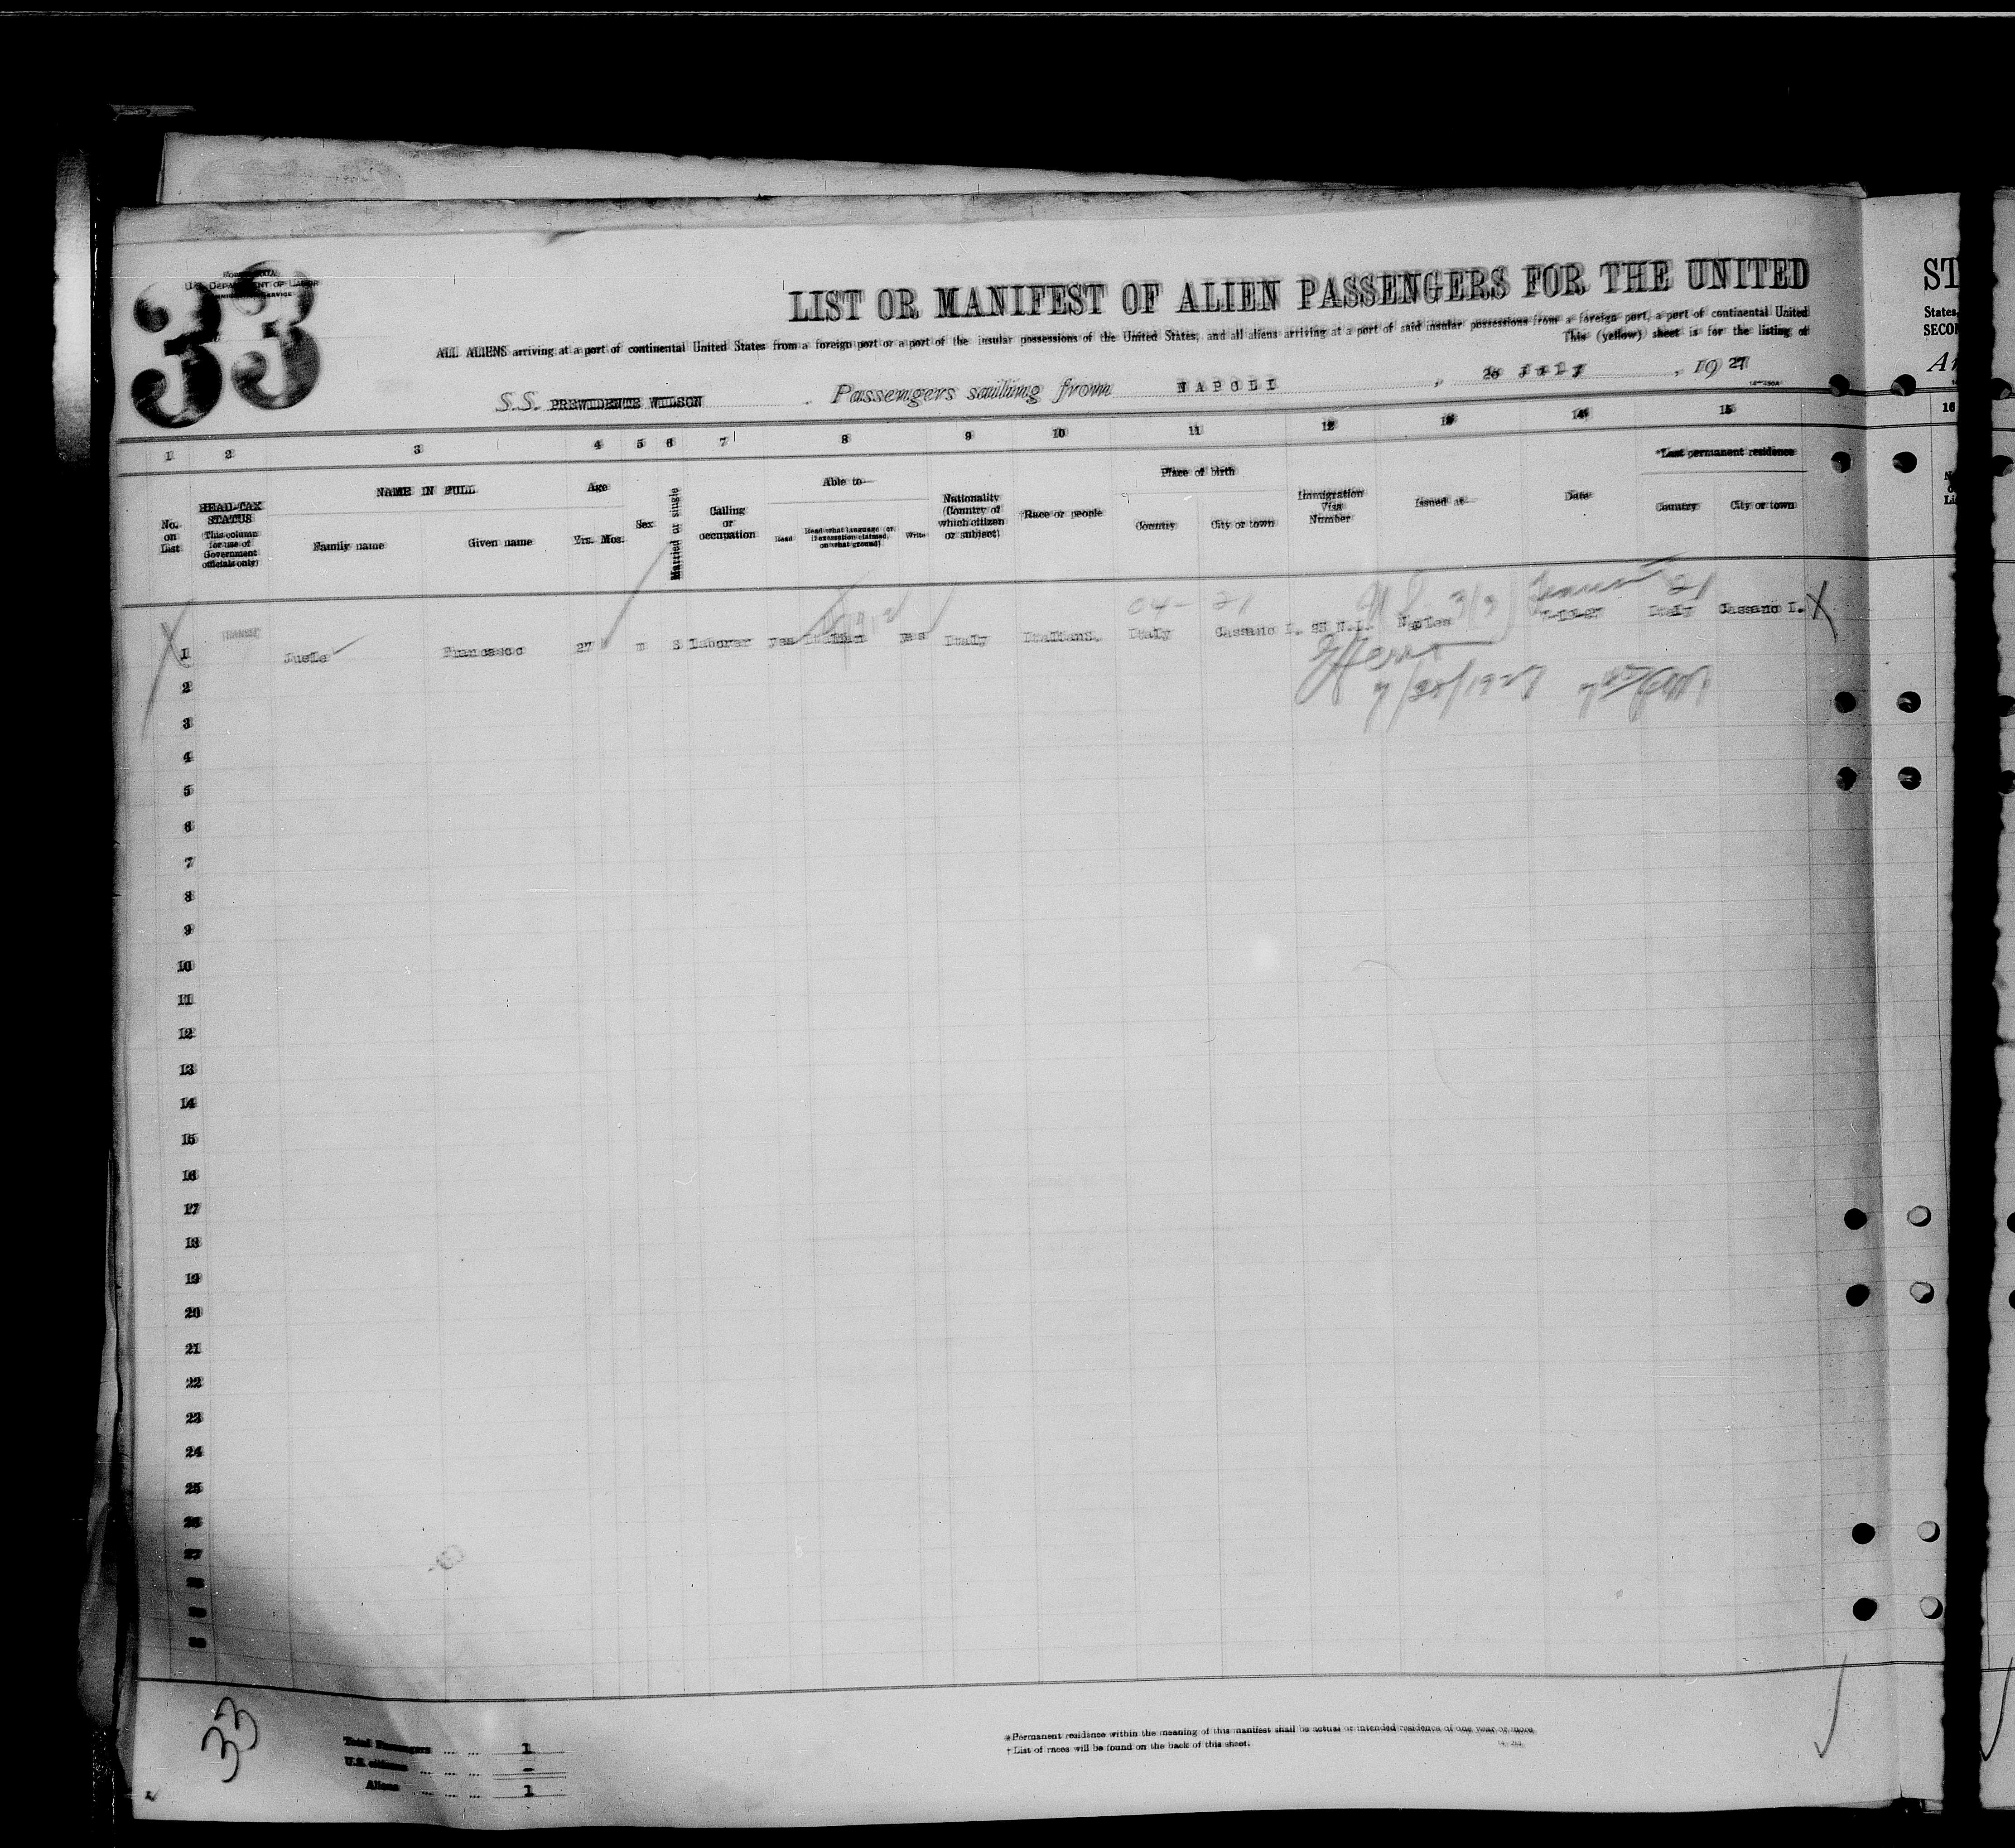 33
U.S. DEPARTMENT OF LABOR
LIST OR MANIFEST OF ALIEN PASSENGERS FOR THE UNITED
ST
ALL ALIENS arriving at a port of continental United States from a foreign port or a port of the insular possessions of the United States, and all aliens arriving at a port of said insular possessions from a foreign port, a port of continental United
States,
This (yellow) sheet is for the listing of
SECON
S.S. PREWIDENTE WILSON Passengers sailing from NAPOLI, 20 July, 1927
Ar
1 2 3 4 5 6 7 8 9 10 11 12 13 14 15
16
No. on List
HEAD-TAX STATUS
This column for use of Government officials only)
NAME IN FULL
Family name Given name
Age
Yrs. Mos.
Sex
Married or single
Calling or occupation
Able to—
Read Read what language (or, if exemption claimed, on what ground) Write
Nationality (Country of which citizen or subject)
Race or people
Place of birth
Country City or town
Immigration Visa Number
Issued at—
Date
*Last permanent residence
Country City or town
04- 21 3/3 21
1 Francesco 27 m S laborer yes Italian yes Italy Italian Italy Cassano I. Naples Italy Cassano I. X
2
3
4
5
6
7
8
9
10
11
12
13
14
15
16
17
18
19
20
21
22
23
24
25
26
27
28
29
30
33
Total Passengers ... ... 1
U.S. citizens ... ... -
Aliens ... ... 1
*Permanent residence within the meaning of this manifest shall be actual or intended residence of one year or more.
†List of races will be found on the back of this sheet.